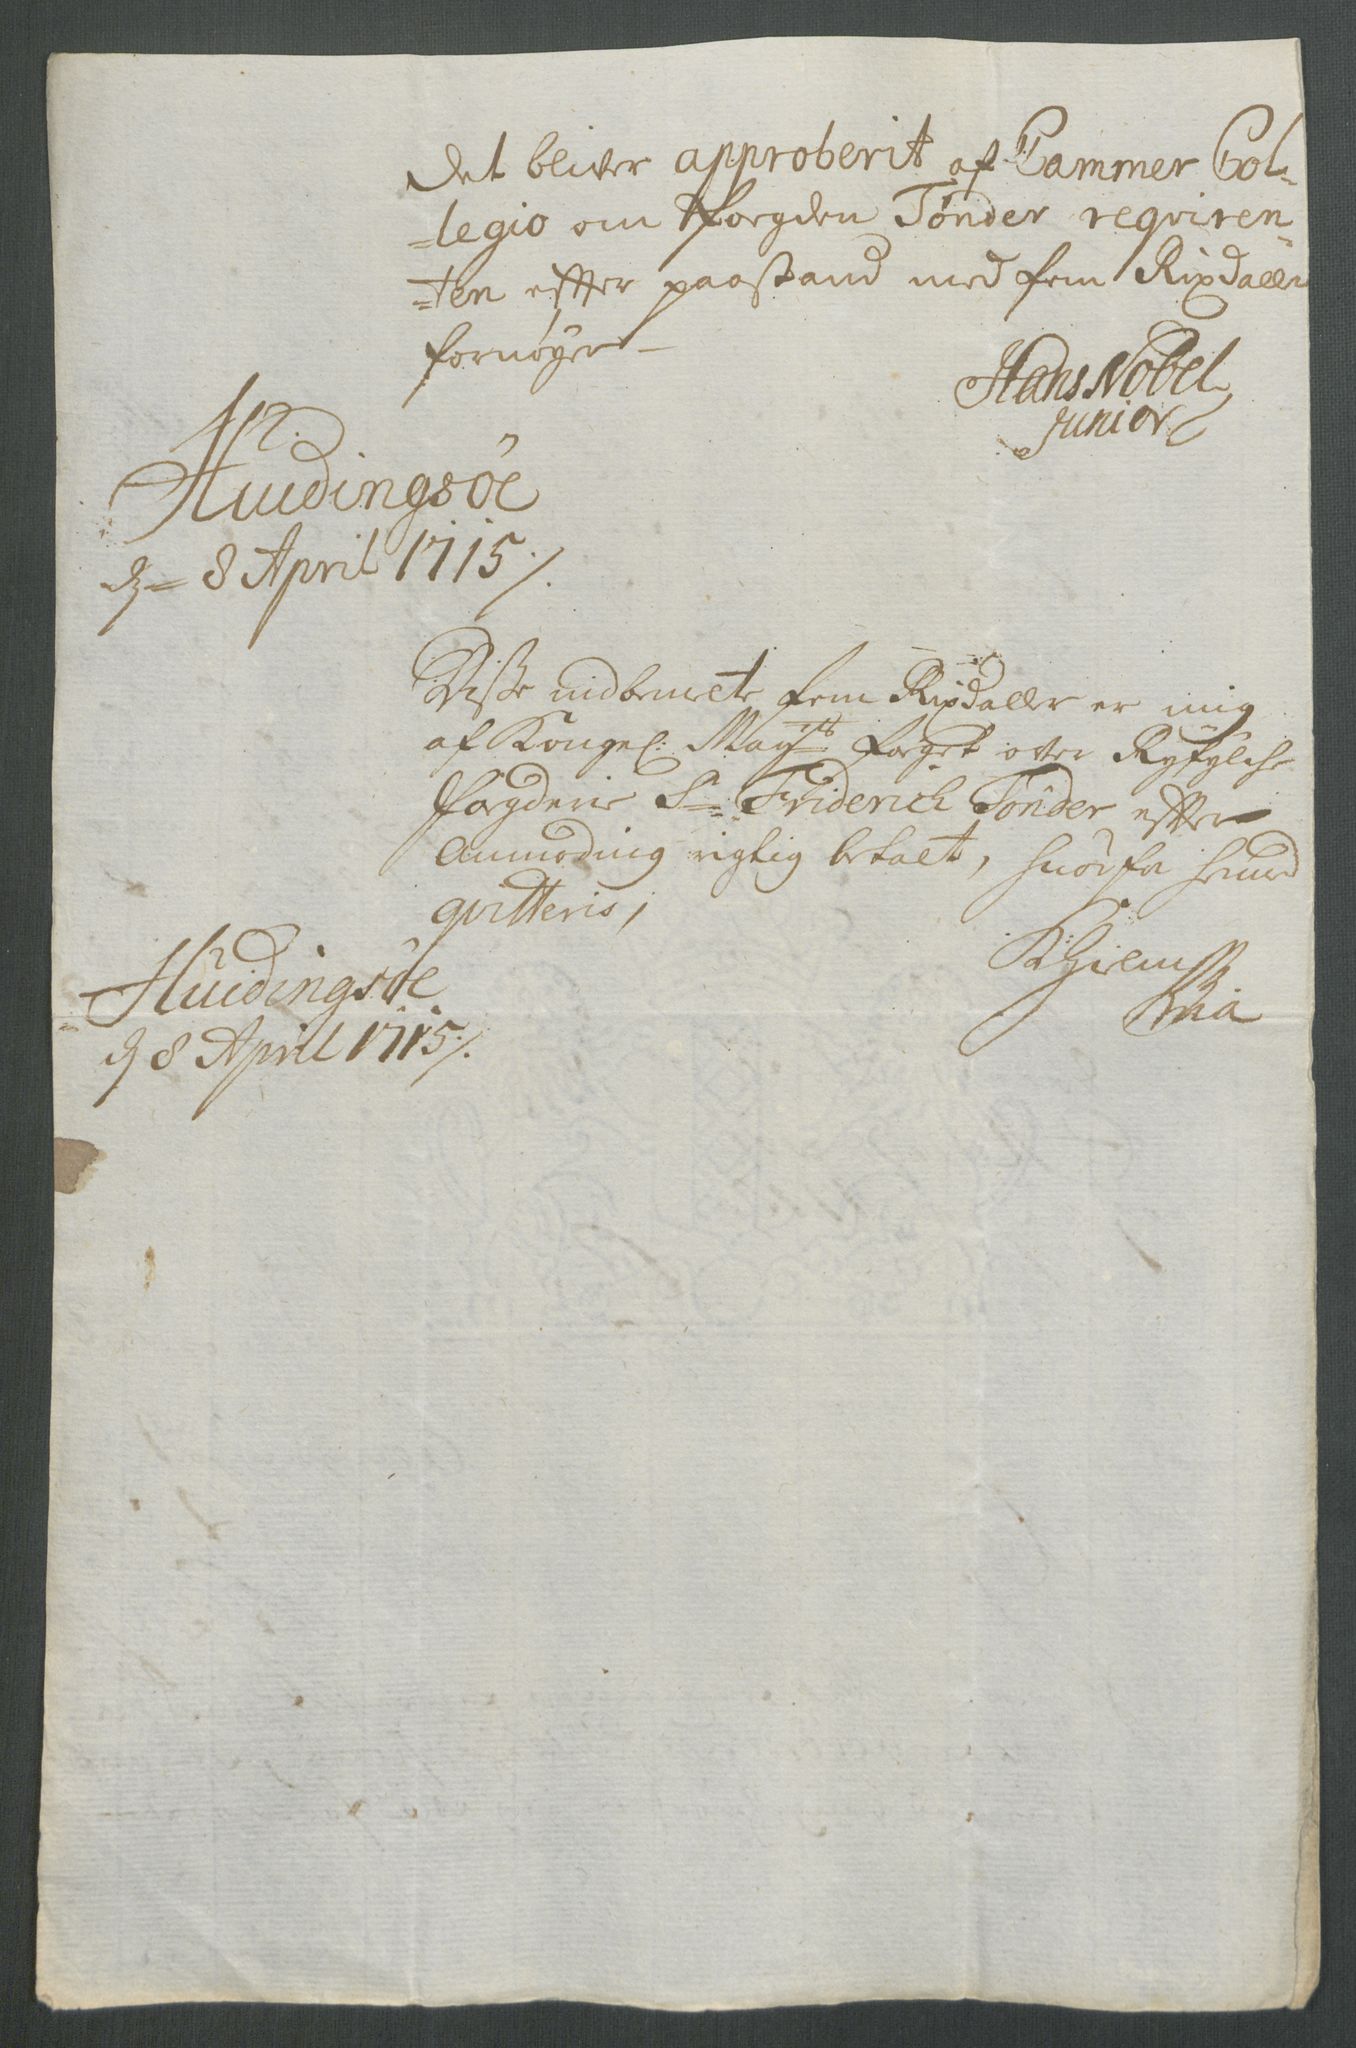 Det bliver approberit af Cammer Col-
=legio om Fogden Tönder reqviren-
=ten effter paastand med fem Rixdaller
fornøyer
Hans Nobel
Junior
Huidingsöe
d 8 April 1715 /.
Disse indbemelte fem Rixdaller er mig
af Kongel: May:ts foget over Ryfylche
fogderie Sr Friderich Tönder effter
Anmoding rigtig betalt, hvorfor hermed
qvitteris,
Huidingsöe
d 8 April 1715 /.